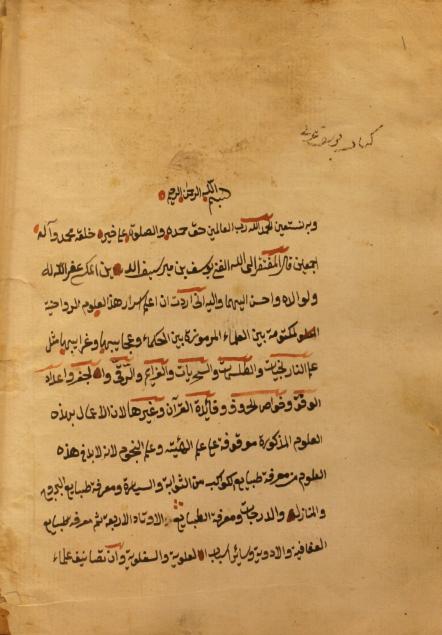 بسم الله الرحمن الرحيم
وبه نستعين الحمد لله رب العالمين حق حمده والصلوة على خير خلقه محمد وآله
اجمعين قال المفتقر الى الله الغني يوسف بن مير سيف الدين بن عفر الله له
ولوالديه واحسن اليهما واليه اني اردت ان اعلم اسرار هذه العلوم الروحانية
المكتومة بين العلماء المرموزة بين الحكماء وعجايبها وغرايبها مثل
علم النارنجيات والطلسمات والسحريات والعزايم والرقى والجفر واعداد
الوفق وخواص الحروف وفائدة القرآن وغيرها لان الاعمال بهذه
العلوم المذكورة موقوفة على علم الهيئة وعلم النجوم لانه لابد في هذه
العلوم من معرفة طبايع كوكب من الثوابة والسيارة ومعرفة طبايع البروج
والمنازل والدرجات ومعرفة الطبايع الاوتاد الاربعة ثم معرفة طبايع
العقاقير والادوية وسائر العلوية والسفلوية وان تصانيف علماء